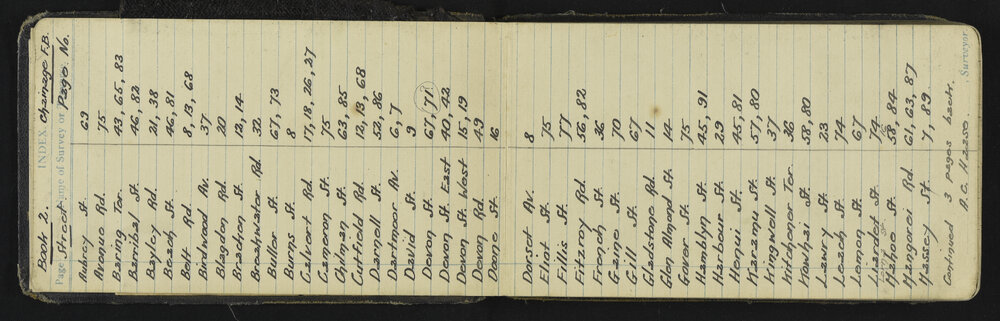 Book 2. INDEX Chainage F.B.
Page Street Name of Survey or Page No.
Aubrey St. 69
Avenue Rd. 75
Baring Ter. 43, 65, 83
Barribal St. 46, 82
Bayley Rd. 21, 38
Beach St. 46, 81
Belt Rd. 8, 13, 68
Birdwood Av. 37
Blagdon Rd. 20
Bracken St. 12, 14
Breakwater Rd. 32
Buller St. 67, 73
Burns St. 8
Calvert Rd. 17, 18, 26, 27
Cameron St. 75
Chilman St. 63, 85
Cutfield Rd. 12, 13, 68
Darnell St. 52, 86
Dartmoor Av. 6, 7
David St. 9
Devon St. 67, 71
Devon St. East 40, 42
Devon St. West 15, 19
Devon Rd. 49
Doone St. 16
Dorset Av. 8
Eliot St. 75
Fillis St. 77
Fitzroy Rd. 56, 82
French St. 36
Game St. 70
Gill St. 67
Gladstone Rd. 11
Glen Almond St. 14
Gover St. 75
Hamblyn St. 45, 91
Harbour St. 29
Honui St. 45, 81
Karamu St. 57, 80
Kingwell St. 37
Kitchener Ter. 36
Kowhai St. 58, 80
Lawry St. 23
Leach St. 74
Lemon St. 67
Liardet St. 74
Mahoe St. 58, 84
Mangorei Rd. 61, 63, 87
Massey St. 7, 89
Continued 3 pages back.
A.C. H2250.
Surveyor